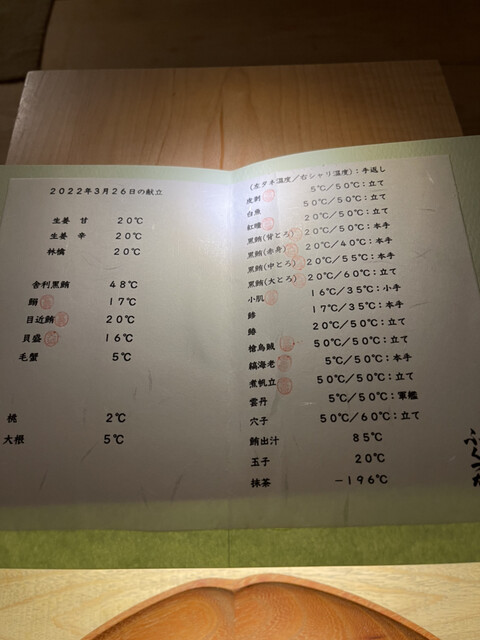 2022年3月26日の献立
生姜 甘 20℃
生姜 辛 20℃
林檎 20℃
舎利黒鮪 48℃
鰯 17℃
目近鮪 20℃
貝盛 16℃
毛蟹 5℃
桃 2℃
大根 5℃
(左タネ温度/右シャリ温度):手返し
皮剥 5℃/50℃:立て
白魚 50℃/50℃:立て
紅瞳 20℃/50℃:立て
黒鮪(背とろ) 20℃/50℃:本手
黒鮪(赤身) 20℃/40℃:本手
黒鮪(中とろ) 20℃/55℃:本手
黒鮪(大とろ) 20℃/60℃:立て
小肌 16℃/35℃:小手
鯵 17℃/35℃:本手
鰆 20℃/50℃:立て
槍烏賊 50℃/50℃:立て
縞海老 5℃/50℃:本手
煮帆立 50℃/50℃:立て
雲丹 5℃/50℃:軍艦
穴子 50℃/60℃:立て
鮪出汁 85℃
玉子 20℃
抹茶 -196℃